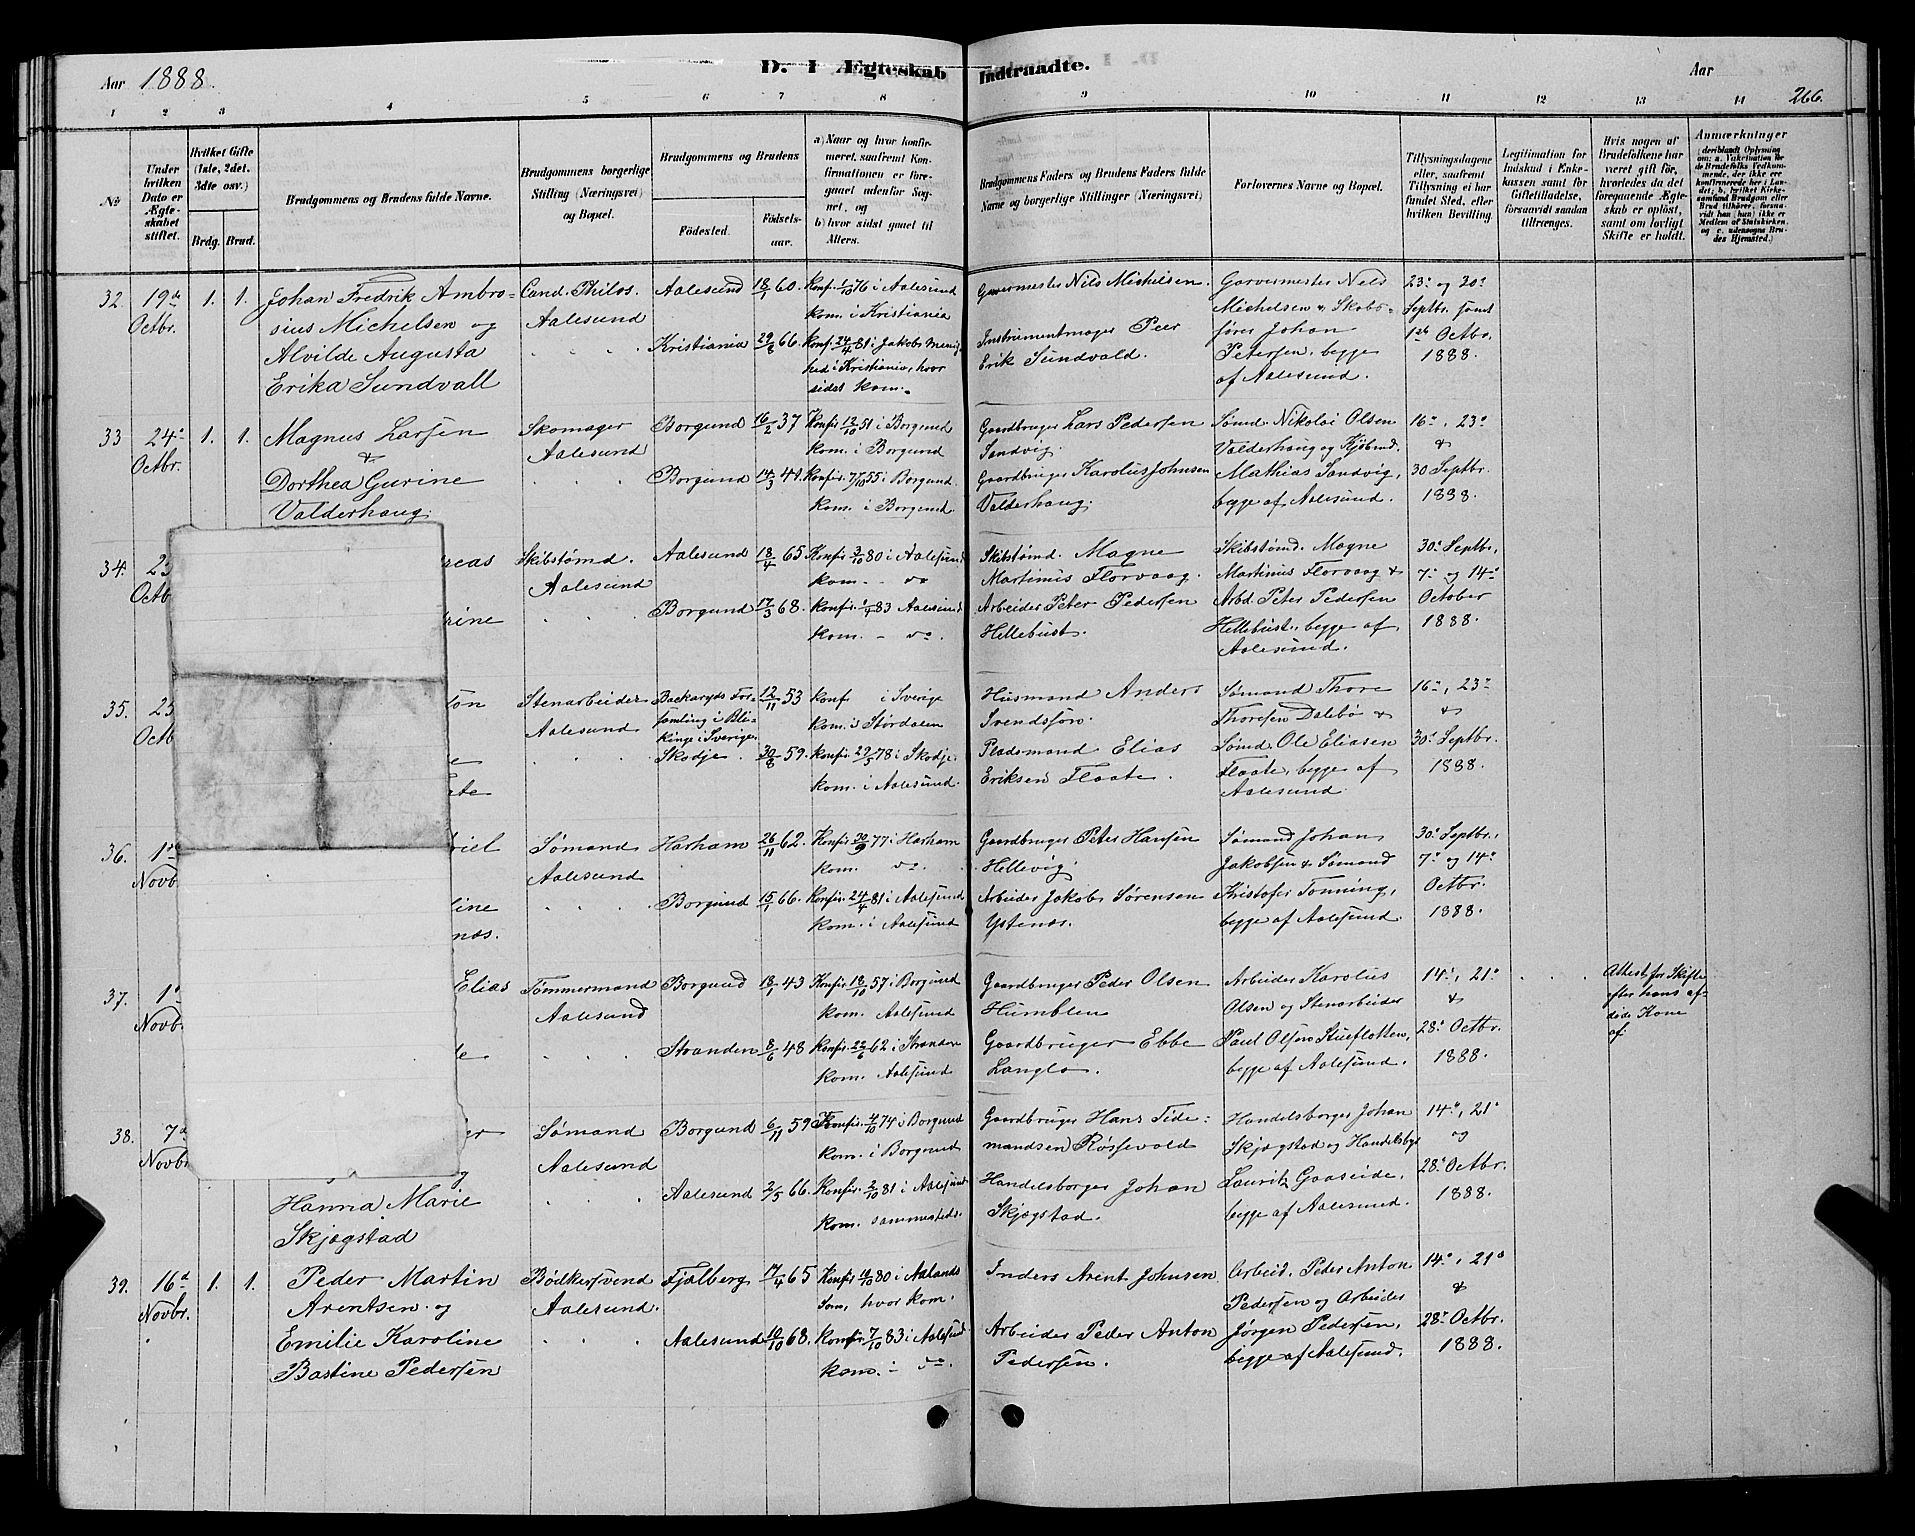 Aar 1888.
D. I Ægteskab Indtraadte.
Aar
266.
1 2 3 4 5 6 7 8 9 10 11 12 13 14
No
Under hvilken Dato er Ægteskabet stiftet.
Hvilket Gifte (1ste, 2det, 3die osv.)
Brdg. Brud.
Brudgommens og Brudens fulde Navne.
Brudgommens borgerlige Stilling (Næringsvei) og Bopæl.
Brudgommens og Brudens
Fødested.
Fødselsaar.
a) Naar og hvor konfirmeret, saafremt Konfirmationen er foregaaet udenfor Sognet, og
b) hvor sidst gaaet til Alters.
Brudgommens Faders og Brudens Faders fulde Navne og borgerlige Stillinger (Næringsvei)
Forlovernes Navne og Bopæl.
Tillysningsdagene eller, saafremt Tillysning ei har fundet Sted, efter hvilken Bevilling.
Legitimation for Indskud i Enkekassen samt for Giftetilladelse, forsaavidt saadan tiltrænges.
Hvis nogen af Brudefolkene har været gift før, hvorledes da det foregaaende Ægteskab er opløst, samt om lovligt Skifte er holdt.
Anmærkninger
(deriblandt Oplysning om: a. Vakcination for de Brudefolks Vedkommende, der ikke ere konfirmerede her i Landet; b. hvilket Kirkesamfund Brudgom eller Brud tilhører, forsaavidt han (hun) ikke er Medlem af Statskirken, og c. udensogns Brudes Hjemsted.)
32. 19de Octbr. 1. 1.
Johan Fredrik Ambro-
sius Michelsen og
Alvilde Augusta
Erika Sundvall
Cand. Philos.
Aalesund
Aalesund 18/1 60.
Kristiania 29/8 66.
Konf. 1/10 76 i Aalesund
kom. i Kristiania
Konf. 24/4 81 i Jakobs Menig-
hed i Kristiania, hvor
sidst kom.
Garvermester Nils Michelsen.
Instrumentmager Peer
Erik Sundvald.
Garvermester Nils
Michelsen & Skibs-
fører Johan
Petersen, begge
af Aalesund.
23de og 30de
Septbr. samt
1ste Octbr.
1888.
33 24de Octbr. 1. 1.
Magnus Larsen
&
Dorthea Gurine
Valderhaug.
Skomager
Aalesund
Borgund 16/2 37
Borgund 14/3 41.
Konfir. 12/10 51 i Borgund
kom. i Borgund
Konfir. 7/10 55 i Borgund.
kom. i Borgund.
Gaardbruger Lars Pedersen
Sandvig.
Gaardbruger Karolus Johnsen
Valderhaug.
Sømd. Nikolai Olsen
Valderhaug og Kjøbmd.
Mathias Sandvig,
begge af Aalesund.
16de, 23de
&
30 Septbr.
1888.
34. 25 Octb
reas
rine
Skibstømd.
Aalesund
Aalesund 18/4 65
Borgund 17/3 68.
Konfir. 3/10 80 i Aalesund
kom. - do
Konfir. 1/4 83 Aalesund
kom. - do.
Skibstømd. Magne
Martinus Florvaag.
Arbeider Peter Pedersen
Hellebust.
Skibstømd. Magne
Martinus Florvaag &
Arbd. Peter Pedersen
Hellebust, begge af
Aalesund.
30te Septbr.,
7de og 14de
October
1888.
35. 25 Octb
ton
e
ate
Stenarbeider
Aalesund
Backaryds For-
samling i Ble-
kinge i Sverige. 12/11 53
Skodje. 30/8 59.
Konf i Sverige
kom. i Stordalen
Konfir. 29/5 78 i Skodje.
kom. i Aalesund.
Husmand Anders
Svendssøn.
Pladsmand Elias
Eriksen Flaate.
Sømand Thore
Thoresen Dalebø &
Sømd. Ole Eliasen
Flaate, begge af
Aalesund.
16de, 23de
&
30te Septbr.
1888.
36. 1ste Novb
riel
line
næs.
Sømand
Aalesund
Harham 26/11 62.
Borgund 15/1 66.
Konfir. 30/9 77 i Harham
kom. do.
Konfir. 24/4 81 i Aalesund
kom. i Aalesund
Gaardbruger Peter Hansen
Hellevig.
Arbeider Jakob Sørensen
Ystenæs.
Sømand Johan
Jakobsen & Sømand
Kristofer Tonning,
begge af Aalesund.
30te Septbr.,
7de og 14de
Octbr.
1888.
37. 1ste Novb
Elias
de
Tømmermand
Aalesund
Borgund 18/1 43
Stranden 8/6 48
Konfir. 18/10 57 i Borgund
kom. Aalesund
Konfir. 22/6 62 i Stranden
kom. Aalesund
Gaardbruger Peder Olsen
Humblen
Gaardbruger Ebbe
Langlo.
Arbeider Karolus
Olsen og Stenarbeider
Paul Olsen Stueflotten,
begge af Aalesund.
14de, 21de
&
28de Octbr.
1888.
Attest for Skifte
efter hans af-
døde Kone
af
38. 7de Novb
er
g
Hanna Marie
Skjægstad
Sømand
Aalesund
Borgund 6/11 59
Aalesund 2/5 66.
Konfir. 4/10 74 i Borgund
kom. i Borgund
Konfir. 2/10 81 i Aalesund
kom. sammesteds.
Gaardbruger Hans Tide-
mandsen Røssevold
Handelsborger Johan
Skjægstad.
Handelsborger Johan
Skjægstad og Handelsbgr
Lauritz Gaaseide,
begge af Aalesund.
14de, 21de
og
28de Octbr.
1888.
39. 16de Novbr. 1. 1.
Peder Martin
Arentsen og
Emilie Karoline
Bastine Pedersen
Bødkersvend
Aalesund.
Fjelberg 17/4 65
Aalesund 10/10 68.
Konfir 10/10 80 i Aalands
Sogn, hvor kom.
Konfir 7/10 83 i Aalesund
kom. - do.
Inders Arent Johnsen
Arbeider Peder Anton
Pedersen.
Arbeid. Peder Anton
Pedersen og Arbeider
Jørgen Pedersen,
begge af Aalesund.
14de, 21de
&
28de Octbr.
1888.